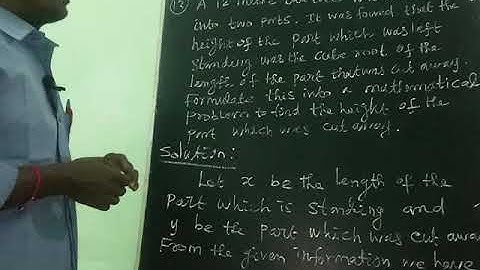 (13) A 12
into two parts. It was found that the
height of the part which was left
standing was the cube root of the
length of the part that was cut away.
Formulate this into a mathematical
problem to find the height of the
part which was cut away.
Solution:
Let x be the length of the
part which is standing and
y be the part which was cut away
From the given information we have